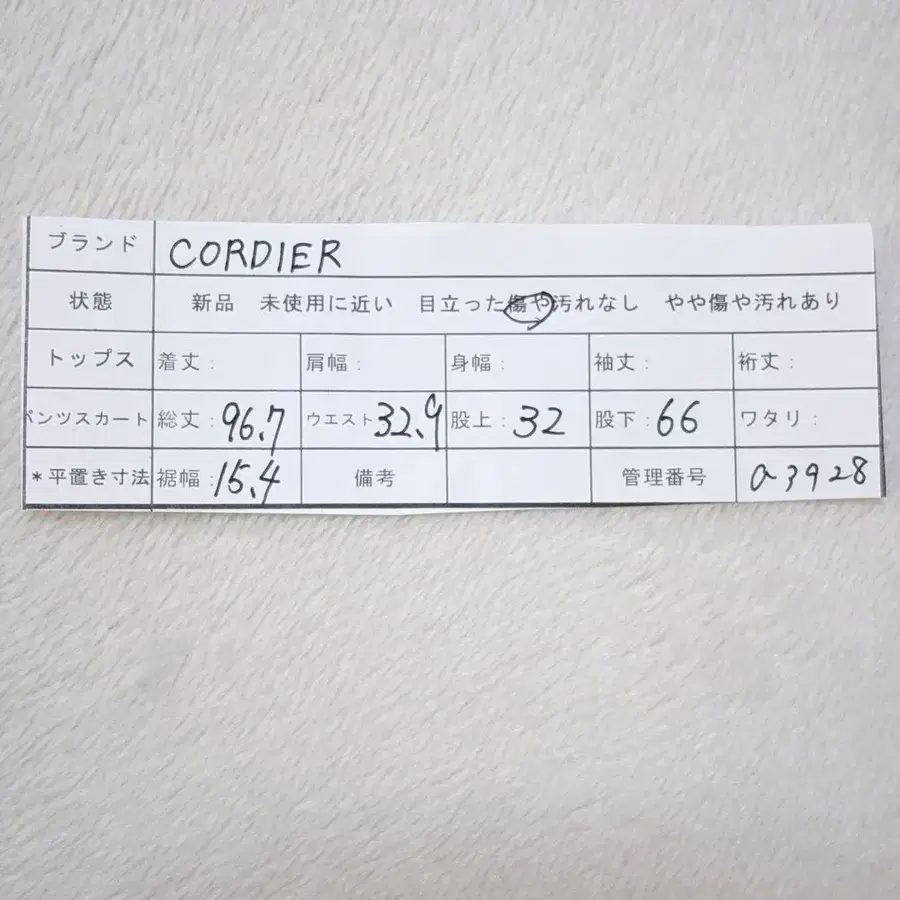 ブランド CORDIER
状態 新品 未使用に近い 目立った傷や汚れなし やや傷や汚れあり
トップス 着丈: 肩幅: 身幅: 袖丈: 裄丈:
パンツスカート 総丈: 96.7 ウエスト 32.9 股上: 32 股下: 66 ワタリ:
*平置き寸法 裾幅: 15.4 備考 管理番号 a3928